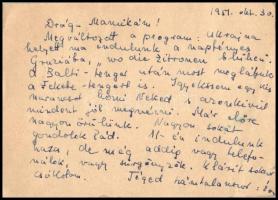 1951. okt. 30.
Drága Mamikám!
Megváltozott a program: Ukrajna
helyett ma indulunk a napfényes
Gruziába, "wo die Zitronen blühen".
A Balti-tenger után most meglátjuk
a Fekete-tengert is. Igyekszem egy kis
narancsot hozni Neked s azonkívül
mindent jól megnézni. Már előre
nagyon örülünk. Nagyon sokat
gondolok Rád. 11-én indulunk
haza, de még addig vagy telefo-
nálok, vagy sürgönyzök. Kézeit sokszor
csókolom. Téged számtalanszor